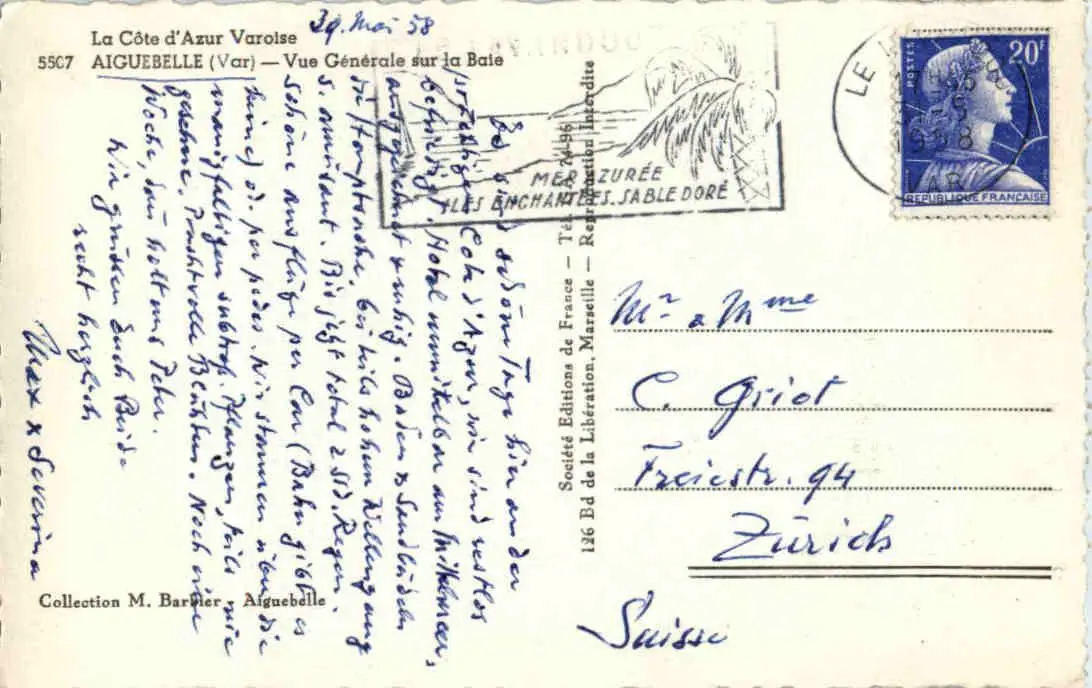 29. Mai 58
La Côte d'Azur Varoise
5507 AIGUEBELLE (Var) — Vue Générale sur la Baie
LE LAVANDOU
MER AZURÉE
ILES ENCHANTÉES. SABLE DORÉ
POSTES
20F
1958
VAR
REPUBLIQUE FRANÇAISE
Es sind schöne Tage hier an der
prächtigen Côte d'Azur, wir sind restlos
befriedigt. Hotel unmittelbar am Mittelmeer,
ausgezeichnet & ruhig. Baden & Sandbädeln
im Hauptsache, bei teils hohem Wellengang
s. amüsant. Bis jetzt total 2 Std. Regen.
Schöne Ausflüge per Car (Bahn gibt es
keine) od. per pedes. Wir staunen über die
mannigfaltigen subtrop. Pflanzen, teils nie
gesehene. Prachtvolle Blüten. Noch eine
Woche, dann holt uns Peter.
Wir grüssen Euch Beide
recht herzlich
Max & Severina
Société Editions de France — Tél.
126 Bd de la Libération, Marseille — Reproduction Interdite
Mr & Mme
C. Griot
Freiestr. 94
Zürich
Suisse
Collection M. Barbier - Aiguebelle